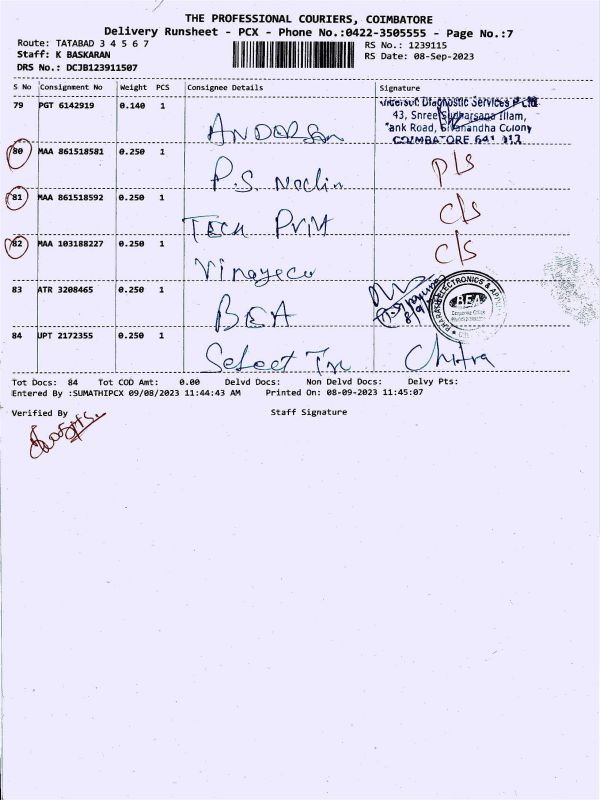 THE PROFESSIONAL COURIERS, COIMBATORE
Delivery Runsheet - PCX - Phone No.:0422-3505555 - Page No.:7
Route: TATABAD 3 4 5 6 7
RS No.: 1239115
Staff: K BASKARAN
RS Date: 08-Sep-2023
DRS No.: DCJB123911507
S No Consignment No Weight PCS Consignee Details Signature
79 PGT 6142919 0.140 1
Diagnostic Services P Ltd.
43, Shree Sudharsana Illam,
Road, Colony
ANDERSON
80 MAA 861518581 0.250 1
P.S. p/s
81 MAA 861518592 0.250 1
TECH c/s
82 MAA 103188227 0.250 1
c/s
83 ATR 3208465 0.250 1
BEA
ELECTRONICS &
BEA
84 UPT 2172355 0.250 1
Select Chitra
Tot Docs: 84 Tot COD Amt: 0.00 Delvd Docs: Non Delvd Docs: Delvy Pts:
Entered By :SUMATHIPCX 09/08/2023 11:44:43 AM Printed On: 08-09-2023 11:45:07
Verified By Staff Signature